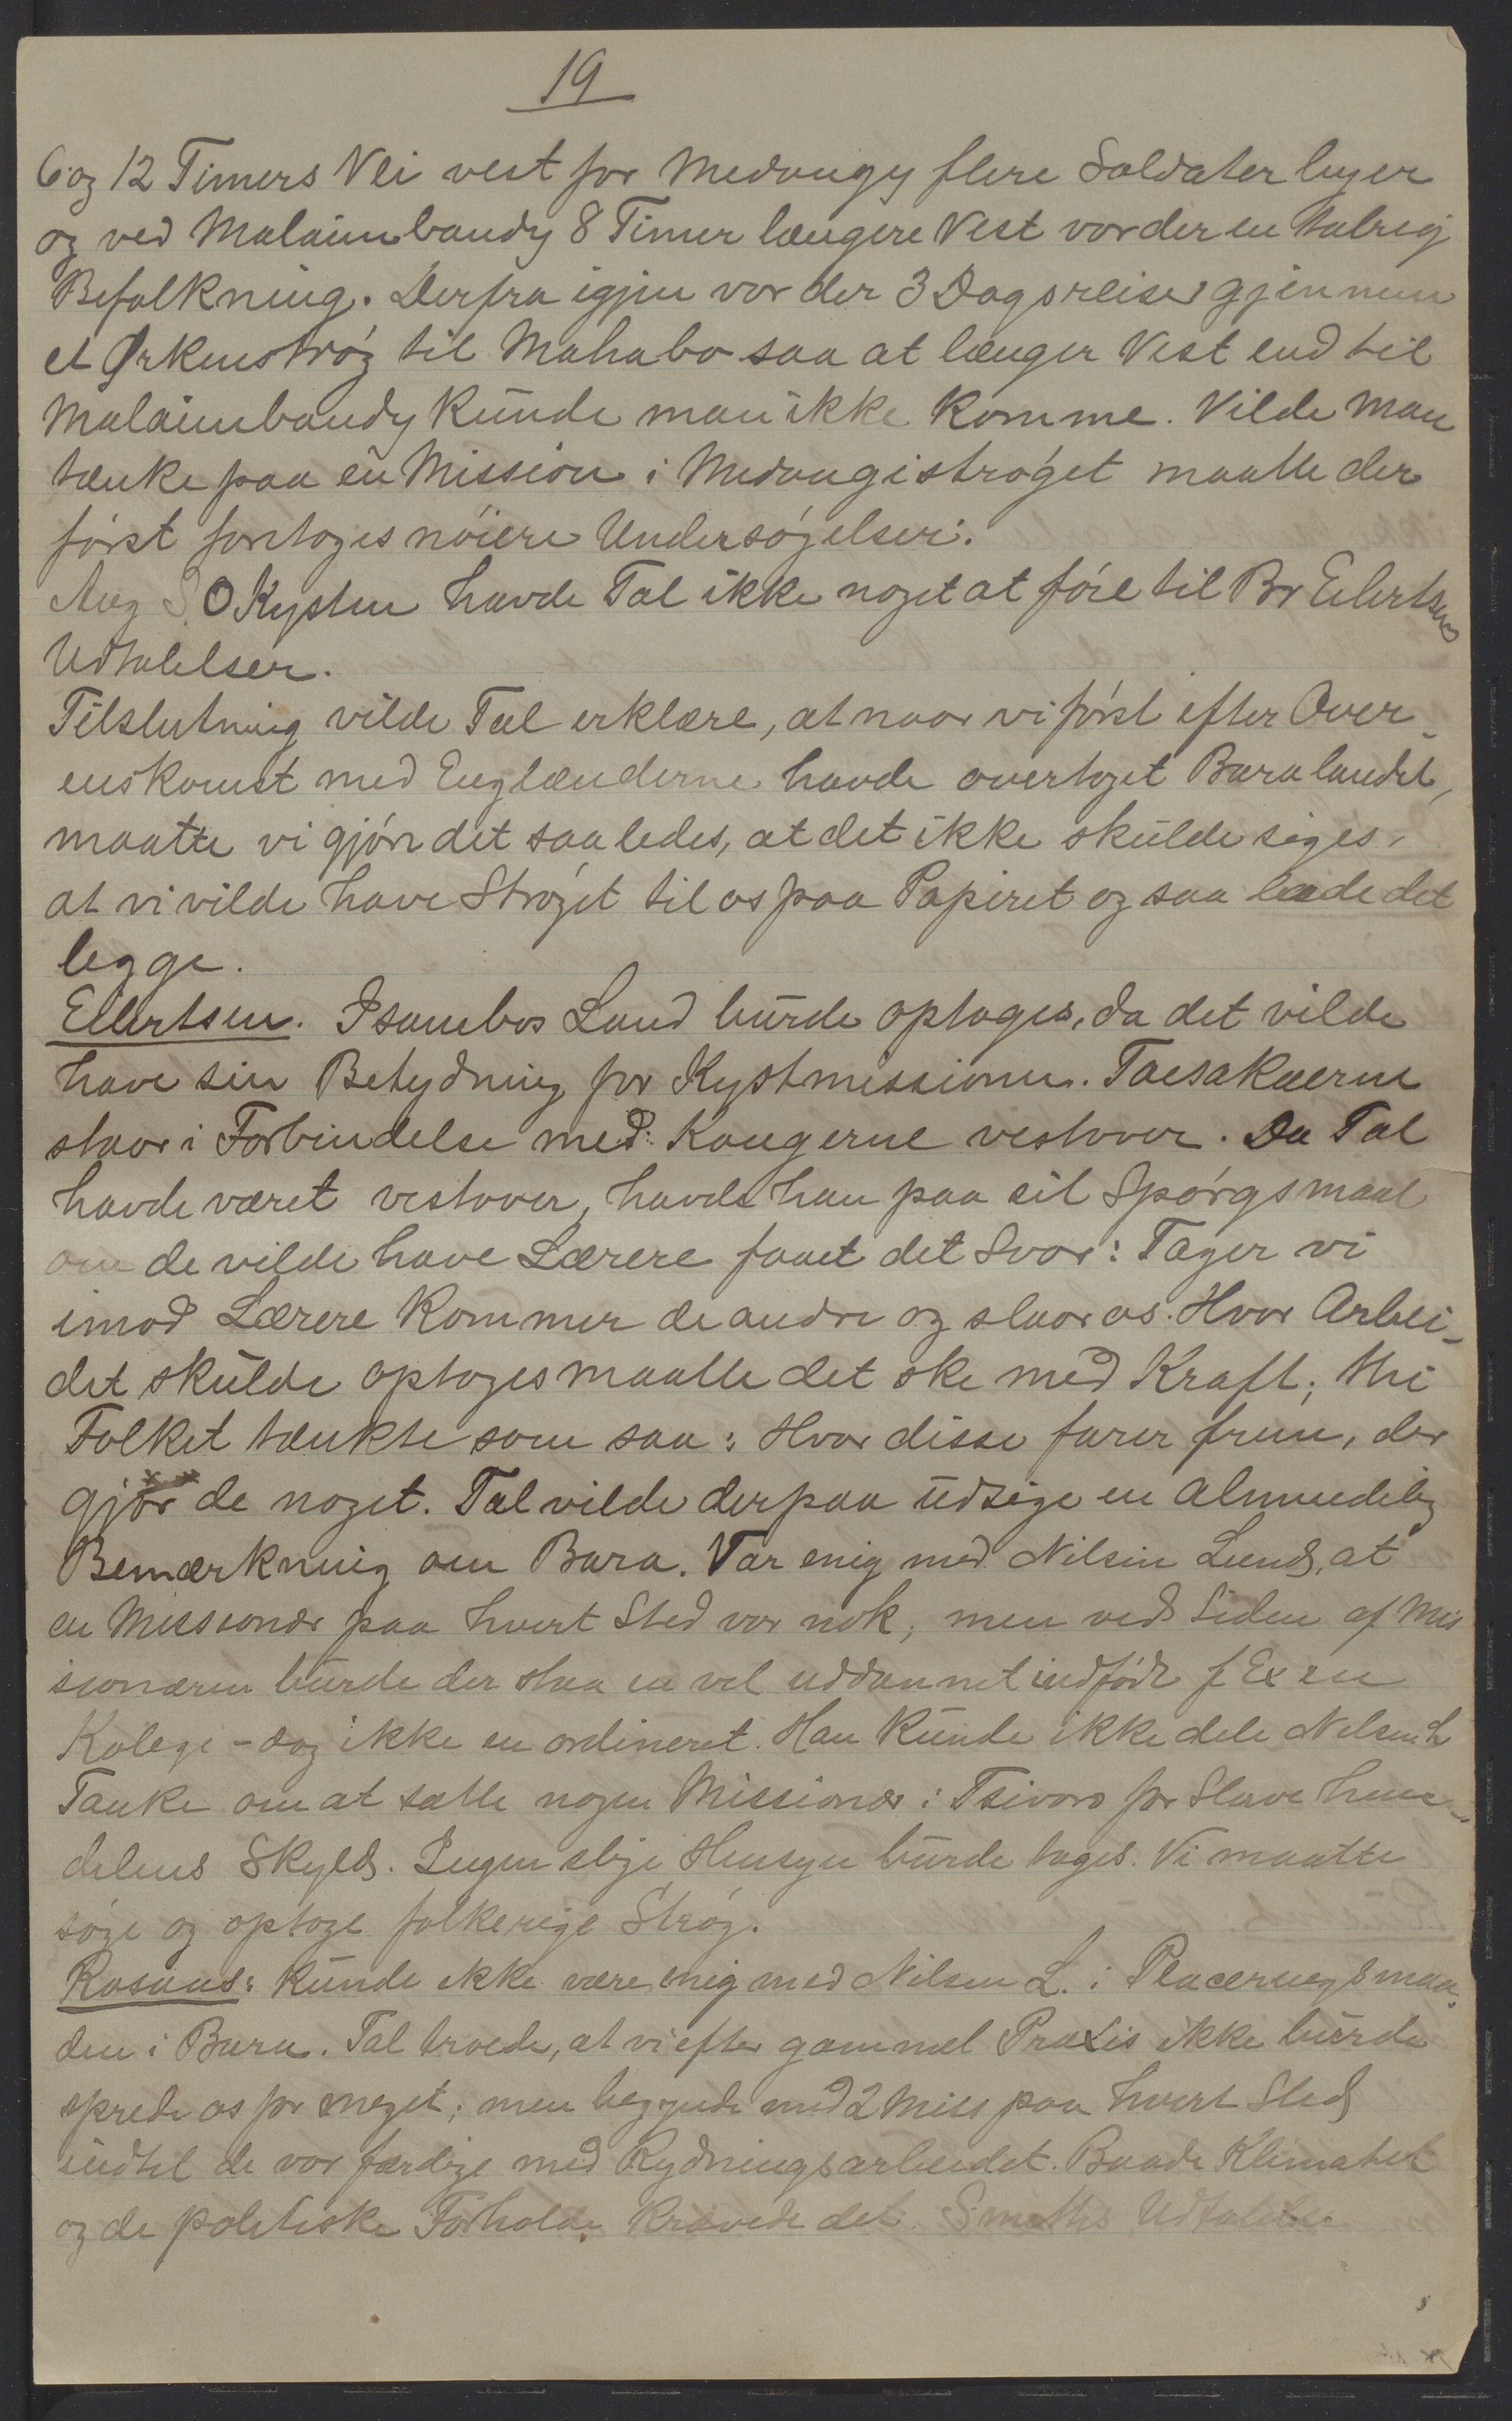 19
6 og 12 Timers Vei vest for Midongy flere Soldaterleyer
og ved Malaimbandy 8 Timer længere Vest var der en talrig
Befolkning. Derfra igjen var der 3 Dagsreiser gjennem
et Ørkenstrøg til Mahabo saa at længer Vest end til
Malaimbandy kunde man ikke komme. Vilde man
tænke paa en Mission i Midongistrøget maatte der
først foretages nøiere Undersøgelser.
Ang S.O Kysten havde Tal ikke noget at føie til Br Eilertsens
Udtalelser.
Tilslutning vilde Tal erklære, at naar vi først efter Over-
enskomst med Englænderne havde overtaget Baralandet,
maatte vi gjøre det saaledes, at det ikke skulde siges,
at vi vilde have Strøget til os paa Papiret og saa lade det
legge.
Eilertsen. Isambos Land burde optages, da det vilde
have sin Betydning for Kystmissionen. Taesakaerne
staar i Forbindelse med Kongerne vestover. Da Tal
havde været vestover, havde han paa sit Spørgsmaal
om de vilde have Lærere faaet det Svar: Tager vi
imod Lærere kommer de andre og slaar os. Hvor Arbei-
det skulde optages maatte det ske med Kraft; thi
Folket tænkte som saa: Hvor disse farer frem, der
gjør de noget. Tal vilde derpaa udsige en almindelig
Bemærkning om Bara. Var enig med Nilsen Lund, at
en Missionær paa hvert Sted var nok; men ved Siden af Mis
sionæren burde der staa en vel uddannet indfødt f Ex en
Kolege - dog ikke en ordineret. Han kunde ikke dele Nilsen L
Tanke om at sætte nogen Missionær i Tsivoro for Slavehan-
delens Skyld. Ingen slige Hensyn burde tages. Vi maatte
søge og optage folkerige Strøg.
Rosaas: kunde ikke være enig med Nilsen L. i Placeringsmaa-
den i Bara. Tal troede, at vi efter gammel Praxis ikke burde
sprede os for meget; men begynde med 2 Miss paa hvert Sted
indtil de var færdige med Rydningsarbeidet. Baade Klimatet
og de politiske Forholde krævede det. Smiths Udtalelse